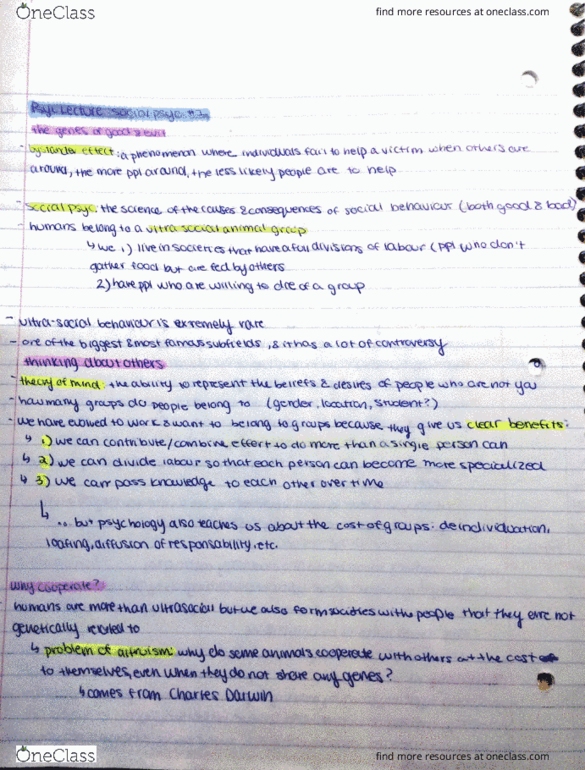 OneClass find more resources at oneclass.com
Psyc Lecture social psyc #3
the genes of good & evil
- bystander effect: a phenomenon where individuals fail to help a victim when others are
around, the more ppl around, the less likely people are to help
- social psyc: the science of the causes & consequences of social behaviour (both good & bad)
- humans belong to a ultra social animal group
↳ we 1) live in societies that have a full divisions of labour (ppl who don't
gather food but are fed by others
2) have ppl who are willing to die of a group
- ultra-social behaviour is extremely rare
- one of the biggest & most famous subfields, & it has a lot of controversy
thinking about others
- theory of mind: the ability to represent the beliefs & desires of people who are not you
- how many groups do people belong to (gender, location, student?)
- we have to work & want to belong to groups because they give us clear benefits:
↳ 1) we can contribute/combine effort to do more than a single person can
↳ 2) we can divide labour so that each person can become more specialized
↳ 3) we can pass knowledge to each other over time
↳
... but psychology also teaches us about the cost of groups: deindividuation,
loafing, diffusion of responsability, etc.
why cooperate?
humans are more than ultrasocial but we also form societies with people that they are not
genetically related to
↳ problem of altruism: why do some animals cooperate with others at the cost
to themselves, even when they do not share any genes?
↳ comes from Charles Darwin
OneClass find more resources at oneclass.com